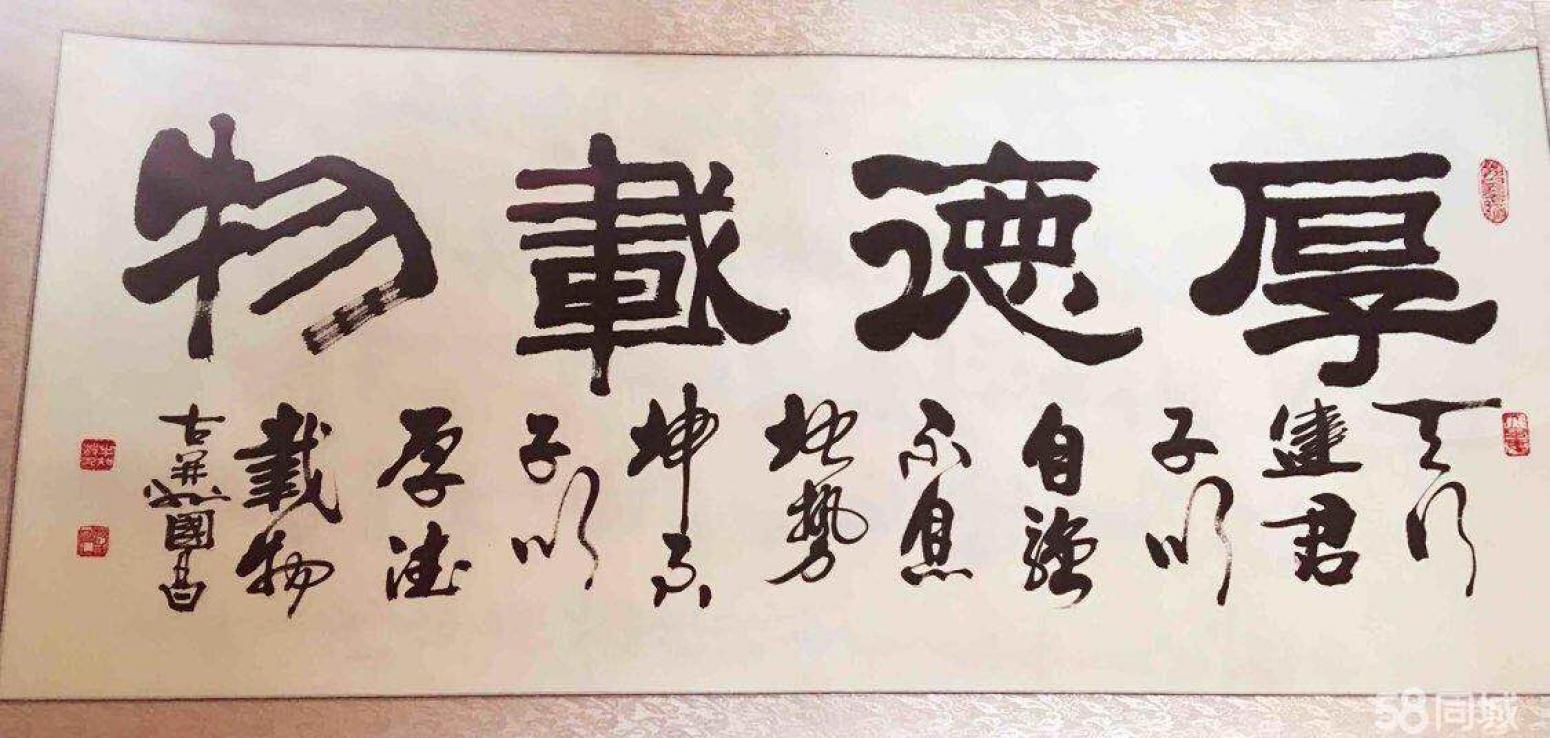 厚德載物
天行
健君
子以
自強
不息
地勢
坤君
子以
厚德
載物
古并國昌
58同城